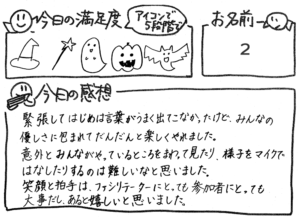 今日の満足度
アイコンで
5段階で
お名前
2
今日の感想
緊張してはじめは言葉がうまく出てこなかったけど、みんなの
優しさに包まれてだんだんと楽しくやれました。
意外とみんながやっているところをまわって見たり、様子をマイクで
はなしたりするのは難しいなと思いました。
笑顔と拍手は、ファシリテーターにとっても参加者にとっても
大事だし、あると嬉しいと思いました。